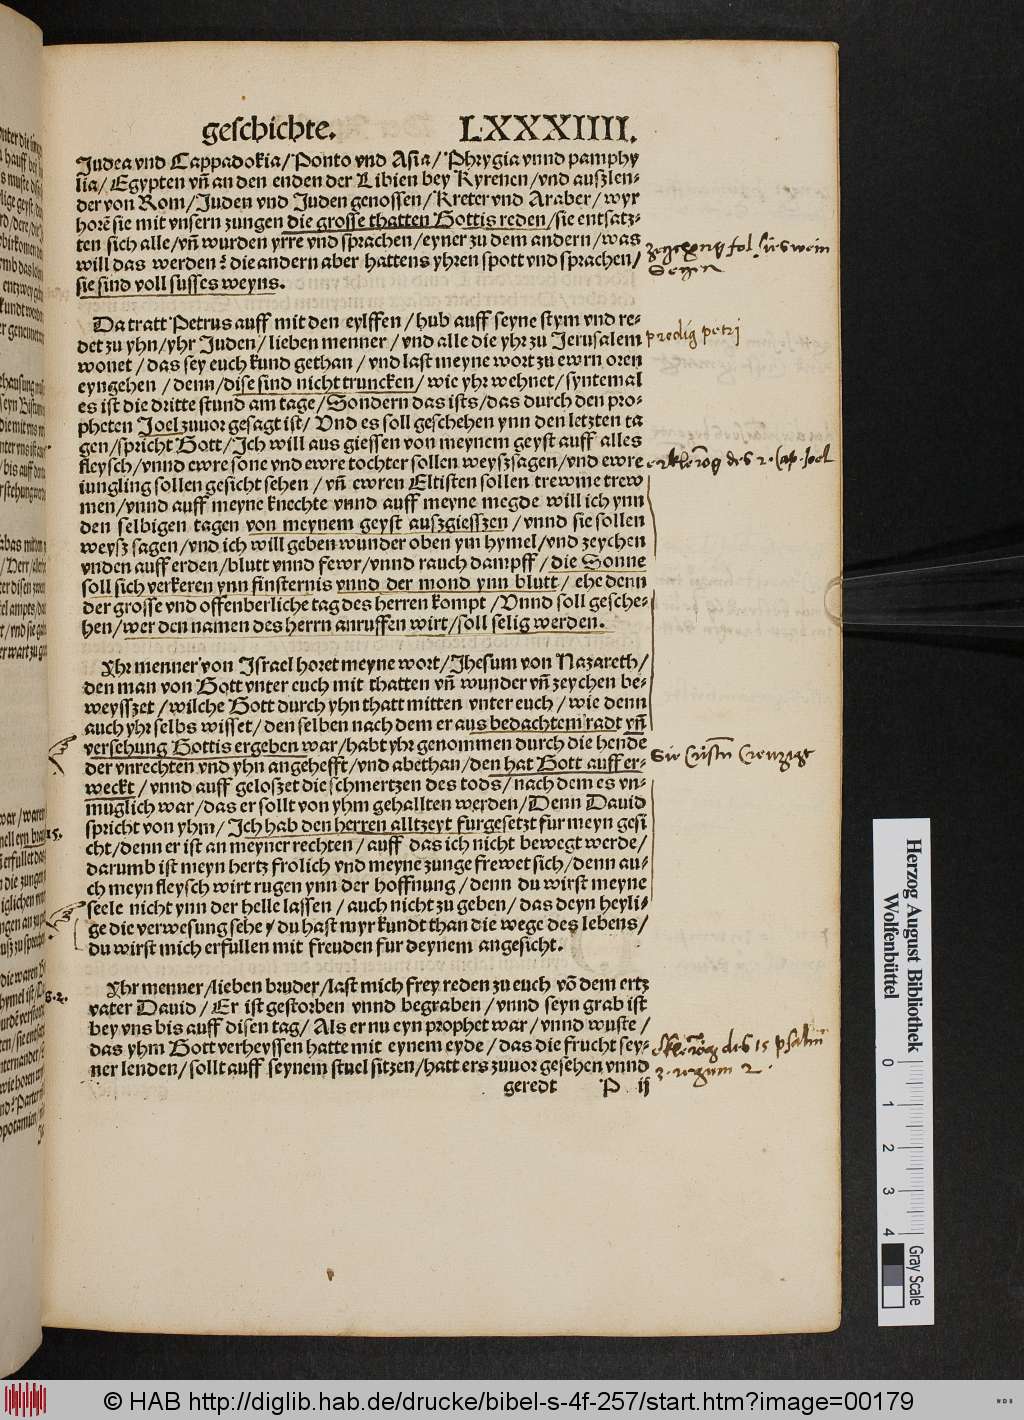 geschichte. LXXXIIII.
Judea vnd Cappadokia/Ponto vnd Asia/Phrygia vnnd pamphy
lia/Egypten vñ an den enden der Libien bey Kyrenen/vnd auszlen⸗
der von Rom/Juden vnd Juden genossen/Kreter vnd Araber/wyr
horẽ sie mit vnsern zungen die grosse thatten Gottis reden/sie entsatz⸗
ten sich alle/vñ wurden yrre vnd sprachen/eyner zu dem andern/was
will das werden? die andern aber hattens yhren spott vnd sprachen/
sie sind voll susses weyns.
Da tratt Petrus auff mit den eylffen/hub auff seyne stym vnd re⸗
det zu yhn/yhr Juden/lieben menner/vnd alle die yhr zu Jerusalem
wonet/das sey euch kund gethan/vnd last meyne wort zu ewrn oren
eyngehen/denn/dise sind nicht truncken/wie yhr wehnet/syntemal
es ist die dritte stund am tage/Sondern das ists/das durch den pro⸗
pheten Joel zuuor gesagt ist/Vnd es soll geschehen ynn den letzten ta
gen/spricht Gott/Jch will aus giessen von meynem geyst auff alles
fleysch/vnnd ewre sone vnd ewre tochter sollen weyszsagen/vnd ewre
iungling sollen gesicht sehen/vñ ewren Eltisten sollen trewme trew
men/vnnd auff meyne knechte vnnd auff meyne megde will ich ynn
den selbigen tagen von meynem geyst auszgiesszen/vnnd sie sollen
weysz sagen/vnd ich will geben wunder oben ym hymel/vnd zeychen
vnden auff erden/blutt vnnd fewr/vnnd rauch dampff/die Sonne
soll sich verkeren ynn finsternis vnnd der mond ynn blutt/ehe denn
der grosse vnd offenberliche tag des herren kompt/Vnnd soll gesche⸗
hen/wer den namen des herrn anruffen wirt/soll selig werden.
Yhr menner von Jsrael horet meyne wort/Jhesum von Nazareth/
den man von Gott vnter euch mit thatten vñ wunder vñ zeychen be⸗
weysszet/wilche Gott durch yhn thatt mitten vnter euch/wie denn
auch yhr selbs wisset/den selben nach dem er aus bedachtem radt vñ
versehung Gottis ergeben war/habt yhr genommen durch die hende
der vnrechten vnd yhn angehefft/vnd abethan/den hat Gott auff er⸗
weckt/vnnd auff geloszet die schmertzen des tods/nach dem es vn⸗
muglich war/das er sollt von yhm gehallten werden/Denn Dauid
spricht von yhm/Jch hab den herren alltzeyt furgesetzt fur meyn gesi
cht/denn er ist an meyner rechten/auff das ich nicht bewegt werde/
darumb ist meyn hertz frolich vnd meyne zunge frewet sich/denn au⸗
ch meyn fleysch wirt rugen ynn der hoffnung/denn du wirst meyne
seele nicht ynn der helle lassen/auch nicht zu geben/das deyn heyli⸗
ge die verwesung sehe/du hast myr kundt than die wege des lebens/
du wirst mich erfullen mit freuden fur deynem angesicht.
Yhr menner/lieben bruder/last mich frey reden zu euch võ dem ertz
vater Dauid/Er ist gestorben vnnd begraben/vnnd seyn grab ist
bey vns bis auff disen tag/Als er nu eyn prophet war/vnnd wuste/
das yhm Gott verheyssen hatte mit eynem eyde/das die frucht sey⸗
ner lenden/sollt auff seynem stuel sitzen/hatt ers zuuor gesehen vnnd
geredt P ij
fol süs wein
predig petri
des 2. Cap. Joel
des 15 psalm
2.
Herzog August Bibliothek
Wolfenbüttel
0 1 2 3 4
Gray Scale
© HAB http://diglib.hab.de/drucke/bibel-s-4f-257/start.htm?image=00179